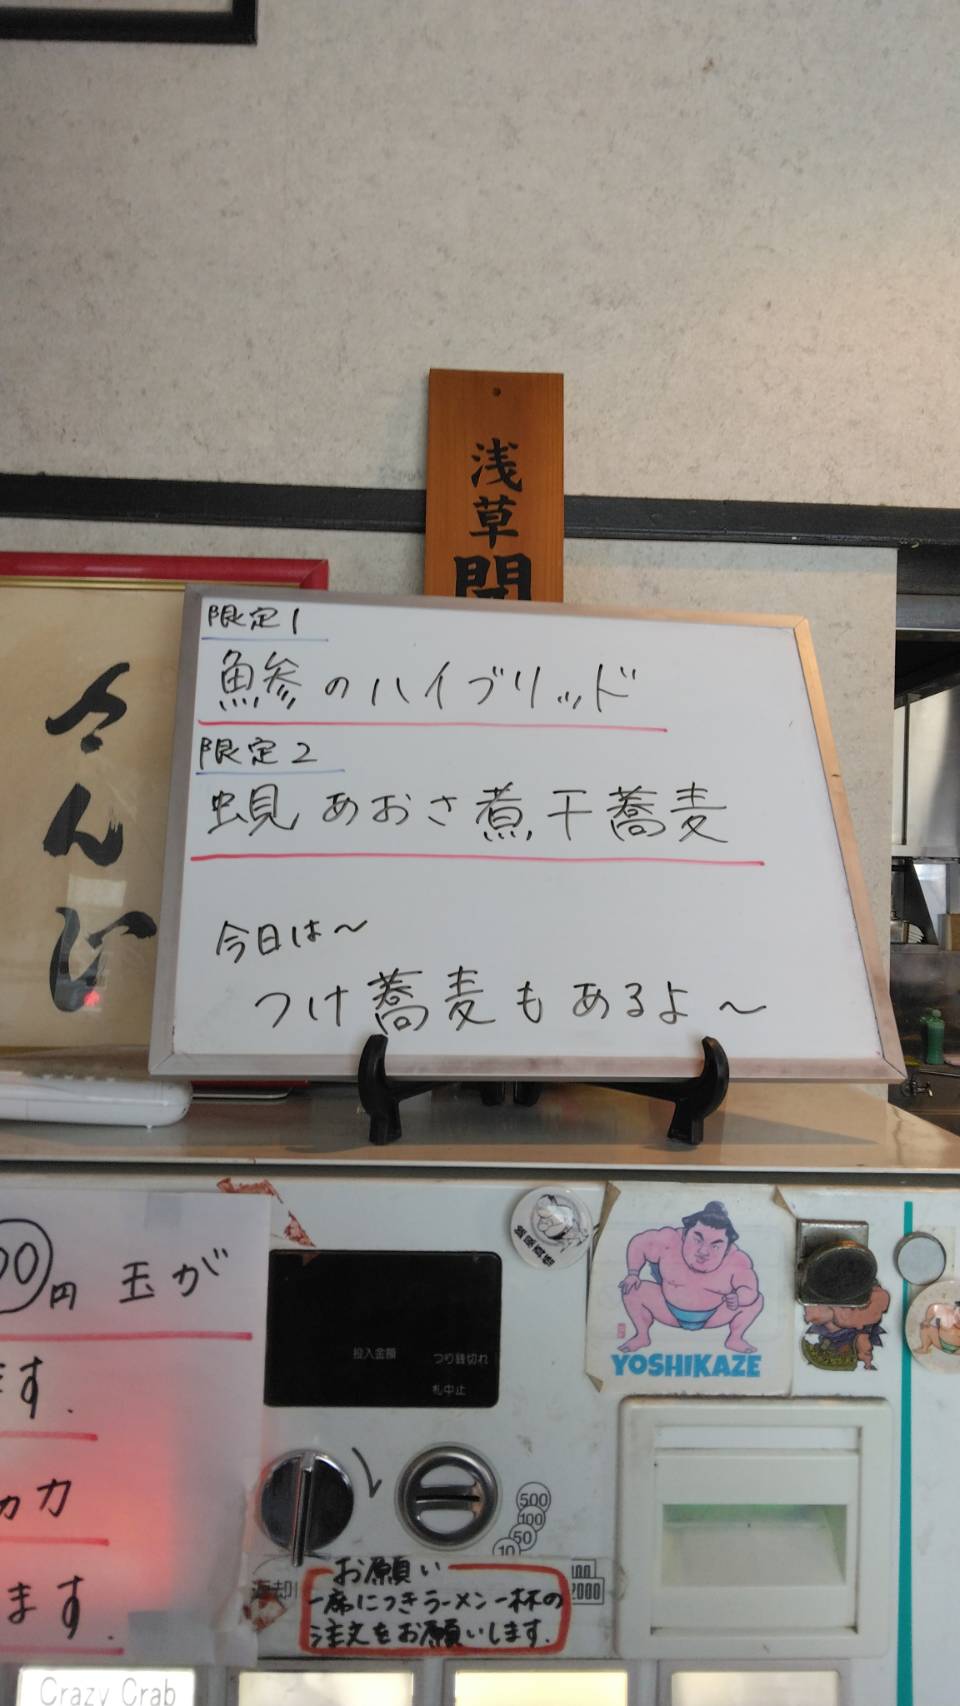 浅草
開
さんじ
限定1
鯵のハイブリッド
限定2
蜆あおさ煮干蕎麦
今日は～
つけ蕎麦もあるよ～
00円 玉が
ます.
ます.
投入金額
つり銭切れ
札中止
YOSHIKAZE
500
100
50
10
返却
2000
お願い
一席につきラーメン一杯の
注文をお願いします.
Crazy Crab